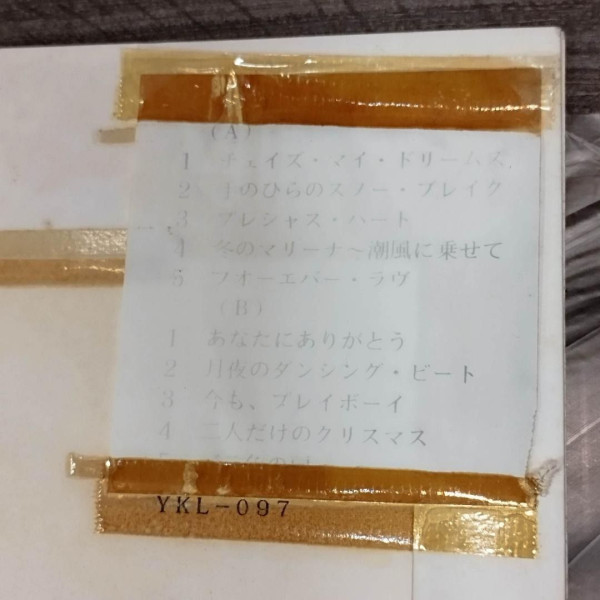 (A)
1 チェイズ・マイ・ドリームズ
2 手のひらのスノー・ブレイク
3 プレシャス・ハート
4 冬のマリーナ〜潮風に乗せて
5 フォーエバー・ラヴ
(B)
1 あなたにありがとう
2 月夜のダンシング・ビート
3 今も、プレイボーイ
4 二人だけのクリスマス
5
YKL-097